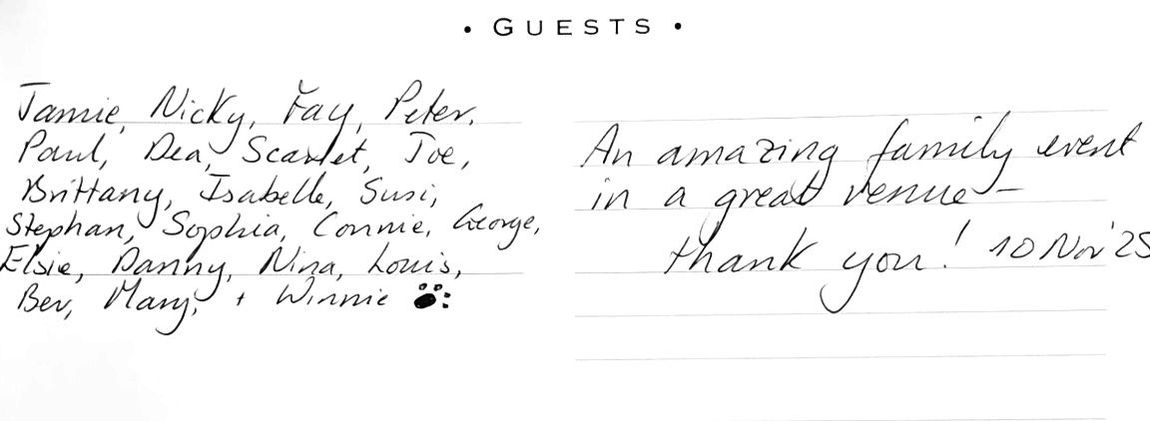 • GUESTS •
Jamie, Nicky, Fay, Peter,
Paul, Dea, Scarlet, Joe,
Brittany, Isabelle, Susi,
Stephan, Sophia, Connie, George,
Elsie, Danny, Nina, Louis,
Bev, Mary, + Winnie
An amazing family event
in a great venue –
thank you! 10 Nov '25